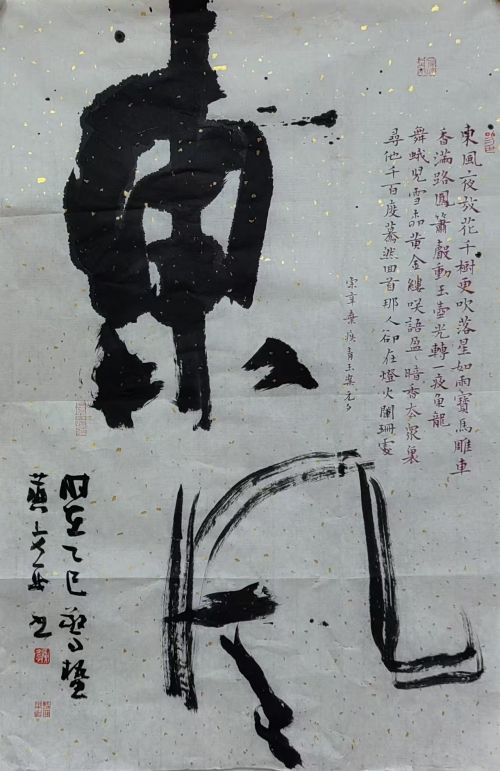 東風
東風夜放花千樹更吹落星如雨寶馬雕車
香滿路鳳簫聲動玉壺光轉一夜魚龍
舞蛾兒雪柳黃金縷咲語盈〻暗香去眾裏
尋他千百度驀然回首那人卻在燈火闌珊處
宋辛棄疾青玉案元夕
时在乙巳驚蟄